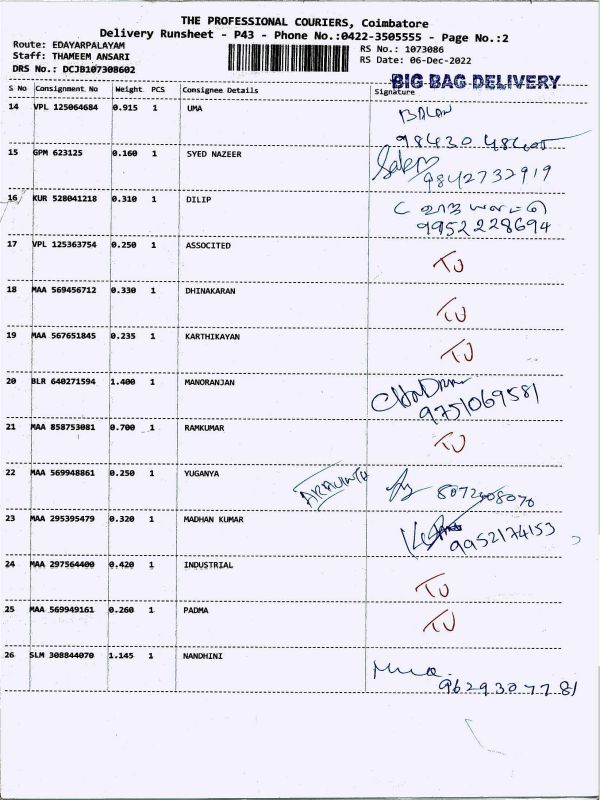 THE PROFESSIONAL COURIERS, Coimbatore
Delivery Runsheet - P43 - Phone No.:0422-3505555 - Page No.:2
Route: EDAYARPALAYAM
Staff: THAMEEM ANSARI
DRS No.: DCJB107308602
RS No.: 1073086
RS Date: 06-Dec-2022
BIG BAG DELIVERY
S No Consignment No Weight PCS Consignee Details Signature
14 VPL 125064684 0.915 1 UMA BALAN
15 GPM 623125 0.160 1 SYED NAZEER
9842732919
16 KUR 528041218 0.310 1 DILIP
9952228694
17 VPL 125363754 0.250 1 ASSOCITED TJ
18 MAA 569456712 0.330 1 DHINAKARAN TJ
19 MAA 567651845 0.235 1 KARTHIKAYAN TJ
20 BLR 640271594 1.400 1 MANORANJAN
9751069581
21 MAA 858753081 0.700 1 RAMKUMAR TJ
22 MAA 569948861 0.250 1 YUGANYA ARAVINTH
23 MAA 295395479 0.320 1 MADHAN KUMAR
9952174153
24 MAA 297564400 0.420 1 INDUSTRIAL TJ
25 MAA 569949161 0.260 1 PADMA TJ
26 SLM 308844070 1.145 1 NANDHINI
9629307781